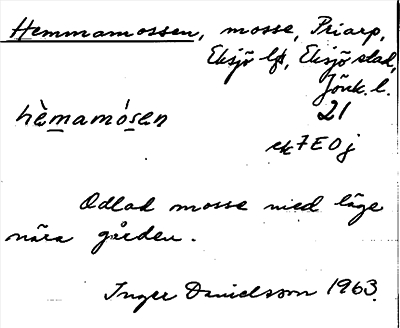 Hemmamossen, mosse, Priarp,
Eksjö lfs, Eksjö stad,
Jönk. l.
hèmamósen 21
ek 7E0j
Odlad mosse med läge
nära gården.
Inger Danielsson 1963.